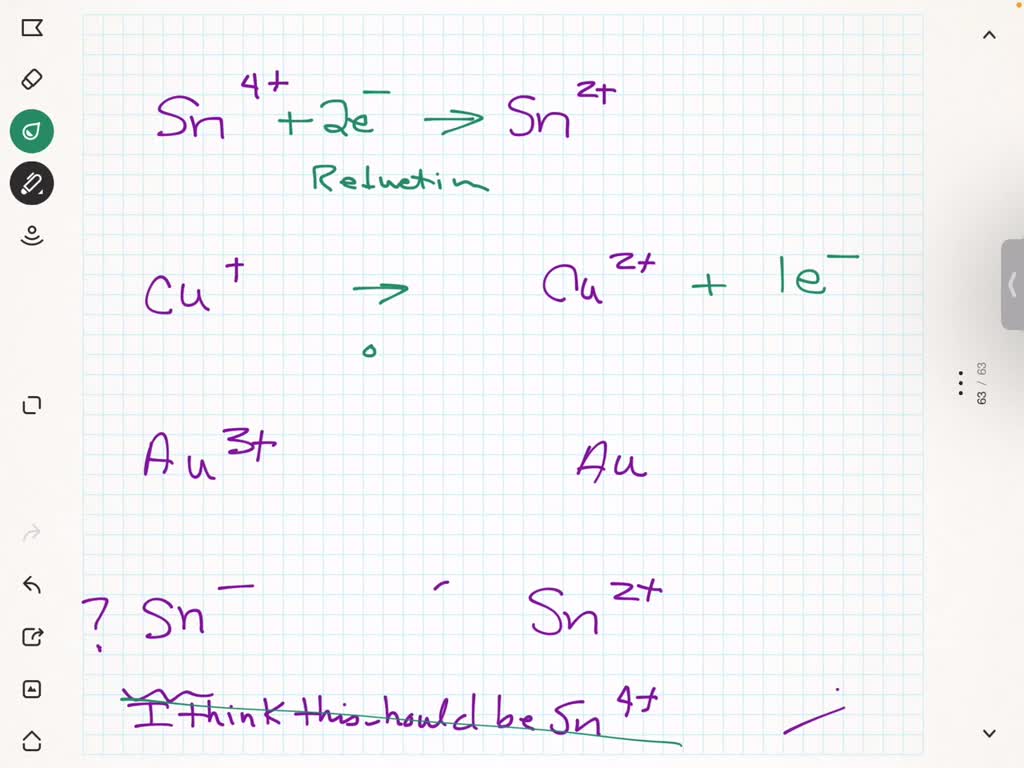 Sn⁴⁺ + 2e⁻ → Sn²⁺
Reduction
Cu⁺ → Cu²⁺ + 1e⁻
o
Au³⁺ Au
? Sn⁻ Sn²⁺
I think this should be Sn⁴⁺
63 / 63